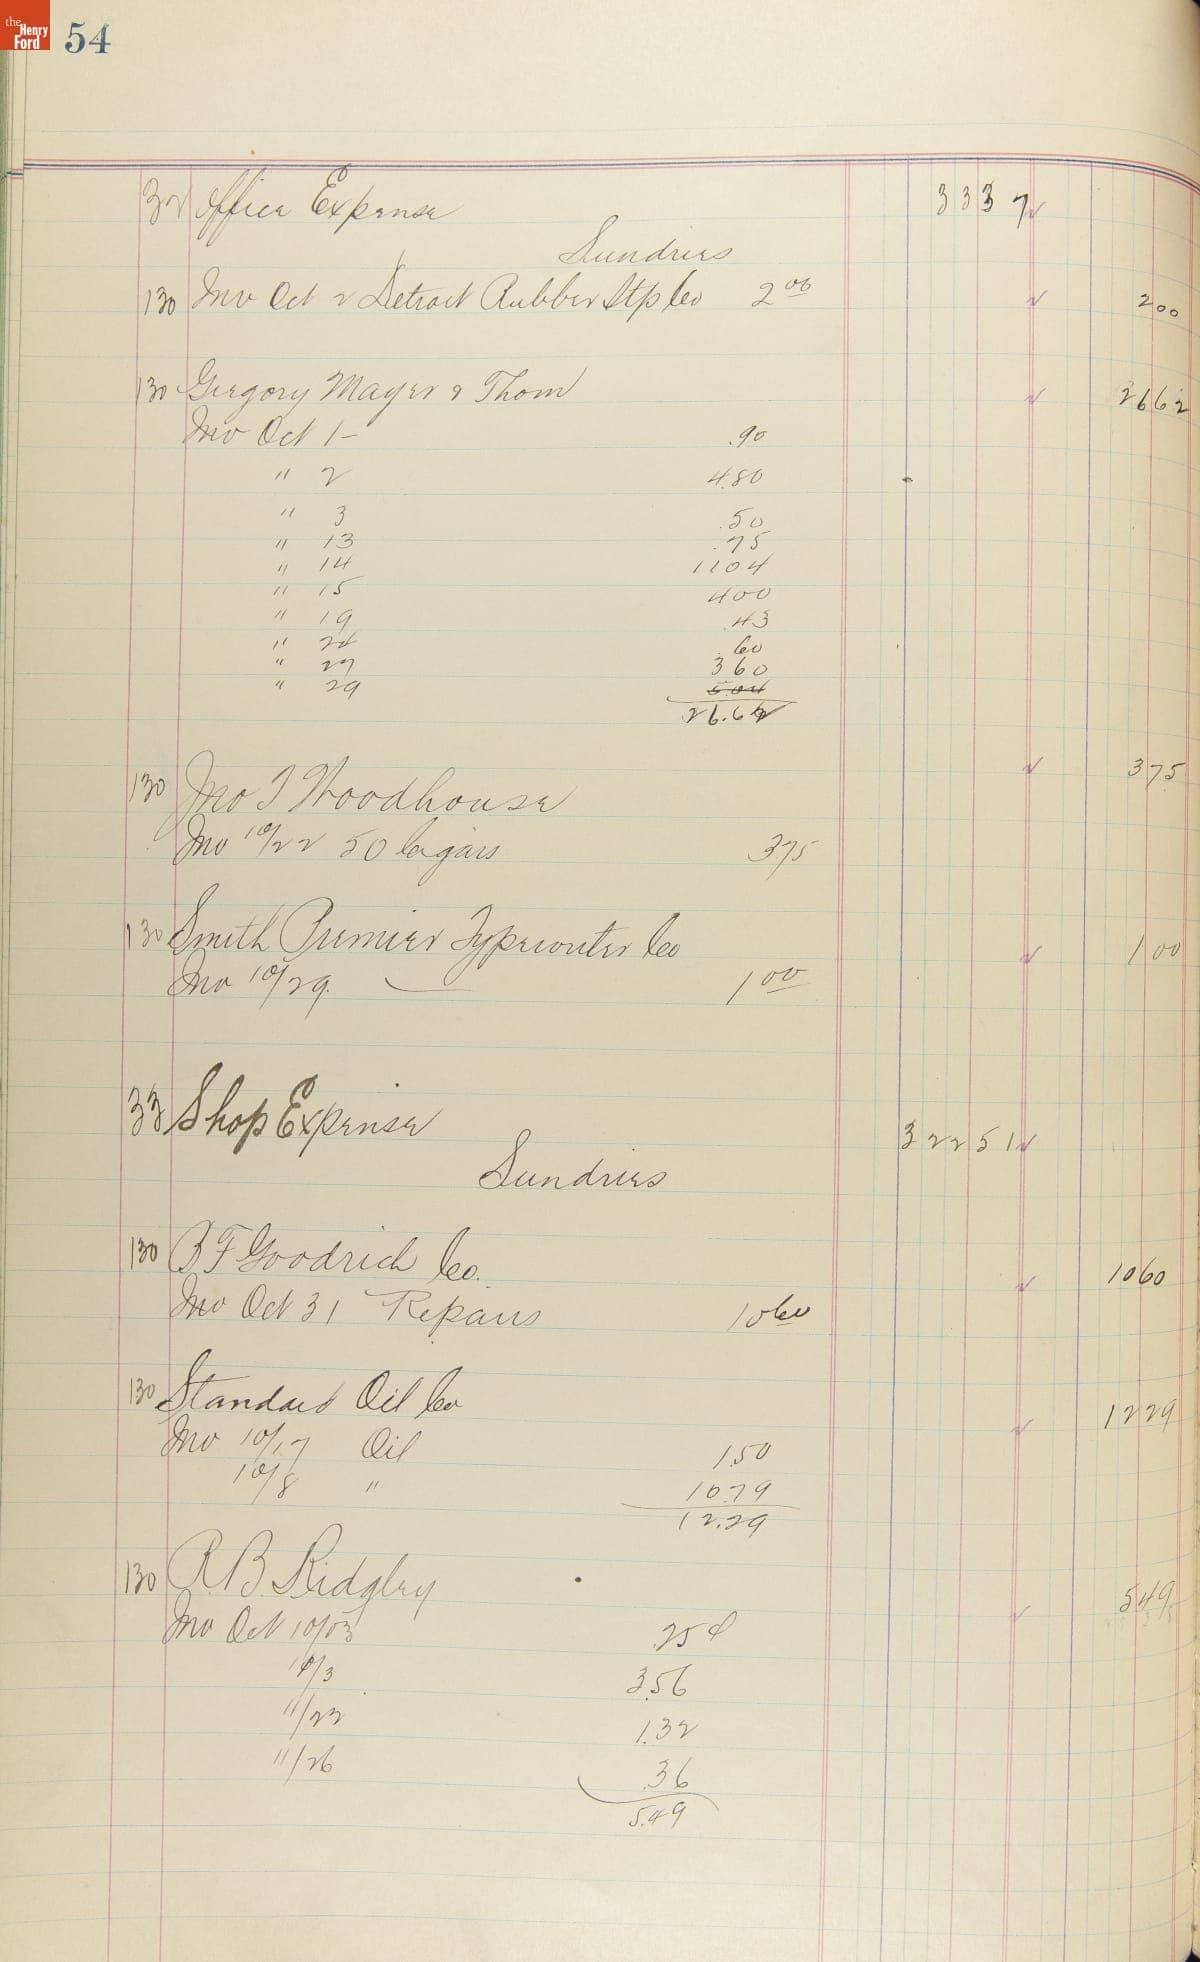 the Henry Ford
54
32 Office Expense 33 37
Sundries
130 Inv Oct 2 Detroit Rubber Stp Co 2 00 2 00
130 Gregory Mayer & Thom 26 62
Inv Oct 1 - .90
" 2 4.80
" 3 .50
" 13 .75
" 14 11 04
" 15 4 00
" 19 .43
" 24 .60
" 27 3 60
" 29 5.04
26.62
130 Jno T Woodhouse 3 75
Inv 10/22 50 Cigars 3 75
130 Smith Premier Typewriter Co 1 00
Inv 10/29. 1 00
33 Shop Expense 322 51
Sundries
130 B F Goodrich Co. 10 60
Inv Oct 31 Repairs 10 60
130 Standard Oil Co 12 29
Inv 10/17 Oil 1.50
10/8 " 10.79
12.29
130 R B Ridgley 5 49
Inv Oct 10/03 .25
10/3 3.56
"/22 1.32
"/26 .36
5.49